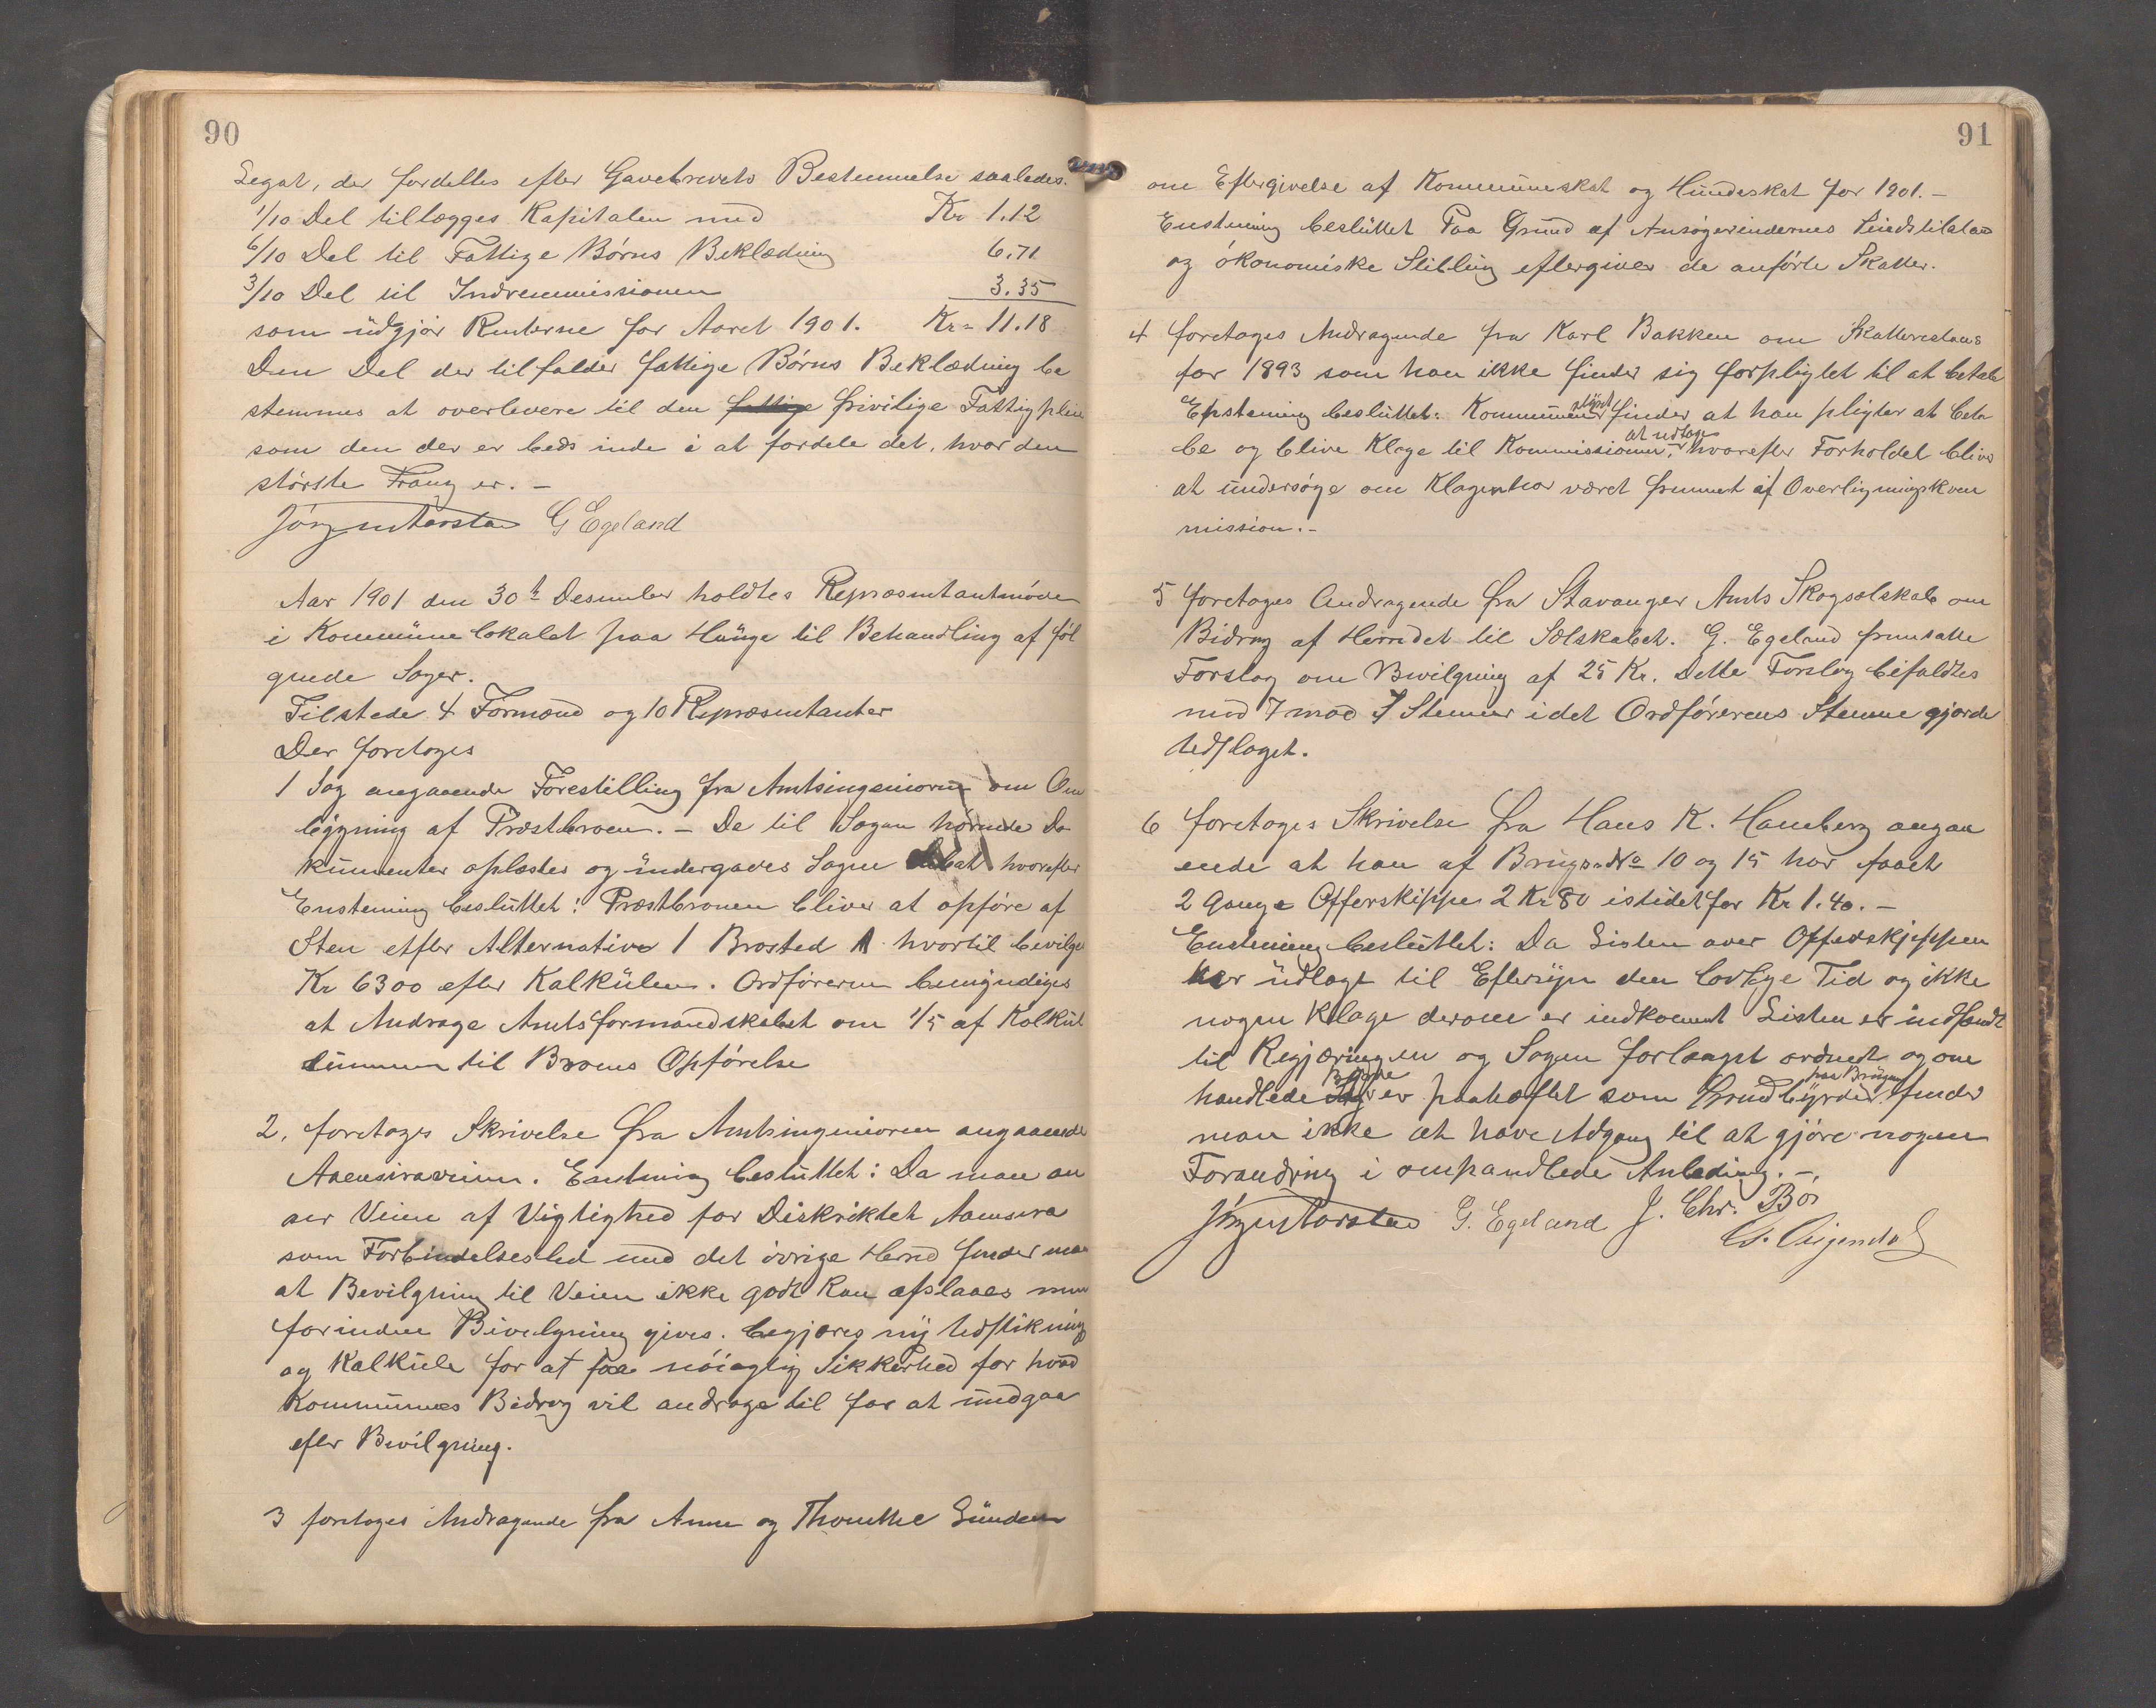 90
Legat, der fordeltes efter Gavebrevets Bestemmelse saaledes.
1/10 Del tillægges Kapitalen med Kr 1.12
6/10 Del til Fattige Børns Beklædning 6.71
3/10 Del til Indremmissionen 3.35
som udgjør Renterne for Aaret 1901. Kr= 11.18
Den Del der tilfalder fattige Børns Beklædning be
stemmes at overlevere til den fattige frivilige Fattigpleie
som den der er beds inde i at fordele det, hvor den
største Trang er. –
G Egeland
Aar 1901 den 30te Desember holdtes Repræsentantmøde
i Kommunelokalet paa Hauge til Behandling af føl
gende Sager.
Tilstede 4 Formænd og 10 Repræsentanter
Der foretoges
1 Sag angaaende Forestilling fra Amtsingeniøren om Om
bygning af Præstbroen. – De til Sagen hørende Do
kumenter oplæstes og undergaves Sagen Debat hvorefter
Enstemmig besluttet: Præstbroen bliver at opføre af
Sten etfter Alternative 1 Brosted A hvortil bevilges
Kr 6300 efter Kalkülen. Ordføreren bemyndiges
at Andrage Amtsformandskabet om 1/5 af Kalkül
summen til Broens Opførelse
2, foretoges Skrivelse fra Amtsingeniøren angaaende
Aaensiraveien. Enstemmig besluttet: Da man an
ser Veien af Vigtighed for Diskriktet Aaensira
som Forbindelsesled med det øvrige Herred finder man
at Bevilgning til Veien ikke godt kan afslaaes men
forinden Bevilgning gives. begjæres ny Udstikning
og Kalkule for at faa nøiagtig Sikkerhed for hvad
Kommunes Bidrag vil andrage til for at undgaa
efter Bevilgning.
3 foretoges Andragende fra Anne og Thomine Sunden
91
om Eftergivelse af Kommuneskat og Hundeskat for 1901. –
Enstemmig besluttet Paa Grund af Ansøgerindernes Sindstilstand
og økonomiske Stilling eftergives de anførte Skatter.
4 foretoges Andragende fra Karl Bakken om Skatterestans
for 1893 som han ikke finder sig forpligtet til at betale
Enstemig besluttet: Kommunen finder at han pligter at beta
le og blive Klage til Kommissionen at udtage, hvorefter Forholdet blive
at undersøge om Klagen har været fremmet af Overligningskom
mission. –
5 foretoges Andragende fra Stavanger Amts Skogselskab om
Bidrag af Herredet til Selskabet. G. Egeland fremsatte
Forslag om Bevilgning af 25 Kr. Dette Forslag bifaldtes
med 7 mod 7 Stemmer idet Ordførerens Stemme gjorde
Udslaget.
6 foretoges Skrivelse fra Hans K. Hamberg angaa
ende at han af Brugs-No 10 og 15 har faaet
2 Gange Offerskippe 2 Kr 80 istedetfor Kr 1.40. –
Enstemmig besluttet: Da Listen over Offerskjeppen
har udlagt til Eftersyn den lovlige Tid og ikke
nogen Klage derom er indkommet Listen er indsendt
til Regjæringen og Sagen forlængst ordnet og om
handlede er paahæftet som Grundbyrder paa Brugene finder
man ikke at have Adgang til at gjøre nogen
Forandring i omhandlede Anledning. –.
G. Egeland J. Chr. Bø